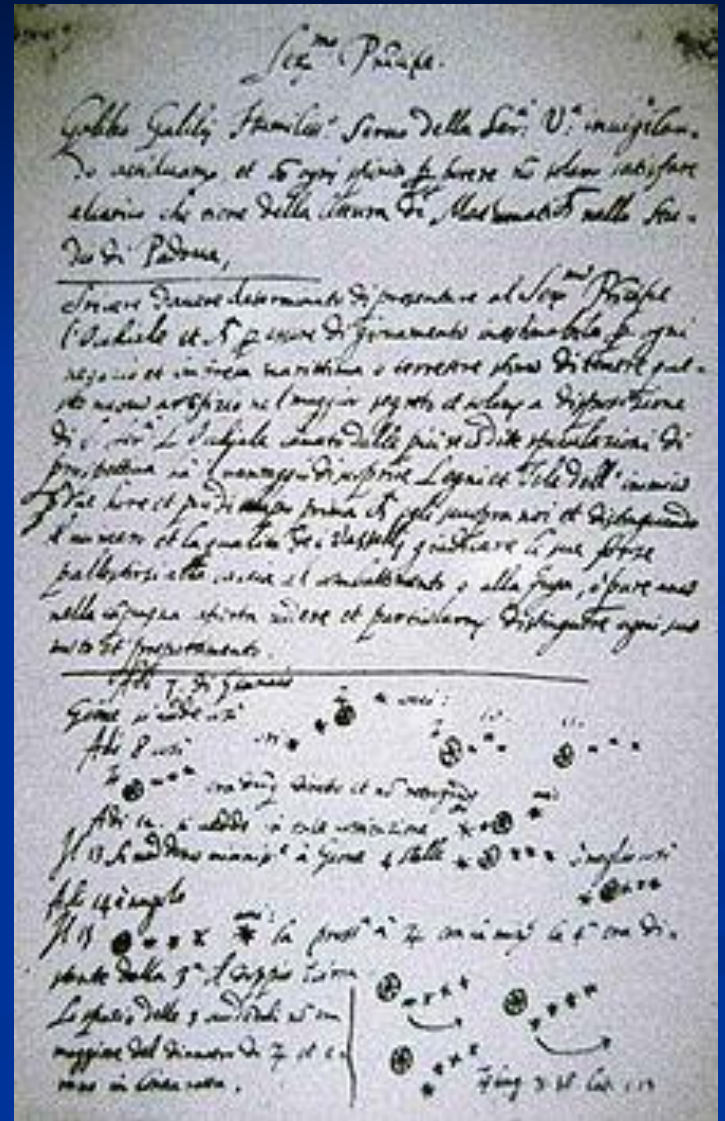 Ser.mo Principe.
Galileo Galilei Humiliss.o Servo della Ser.a V.a invigilan-
do assiduam.te et cō ogni spirito p potere nō solam.te satisfare
al carico che tiene della lettura di Mathematiche nello Stu-
dio di Padova,
Scrive d'havere determinato di presentare al Ser.mo Principe
l'Occhiale et p essere di giovamento inestimabile p ogni
negozio et impresa marittima o terrestre stima di tenere que-
sto nuovo artifizio nel maggior segreto et solam.te a disposizione
di S. Ser.tà L'Occhiale cavato dalle più recondite speculazioni di
prospettiva ha il vantaggio di scoprire Legni et Vele dell'inimico
p due hore et più di tempo prima ch'egli scuopra noi et distinguendo
il numero et la qualità de i Vasselli giudicare le sue forze
pallestirsi alla caccia al combattimento o alla fuga, o pure anco
nella capagna aperta vedere et particolarm.te distinguere ogni suo
moto et preparamento.
Adì 7 di Gennaio
Giove si vede così
Adì 8 così
era diretto et nō retrogrado
Adì 12 si vedde in tale
Il 13 si veddono à Giove 4 stelle così
Adì 14 è nugolo
Il 15 la
stante dalla 3.a il doppio
Lo spazio delle 3 nō era
maggiore del diametro di et e-
rano in linea retta.